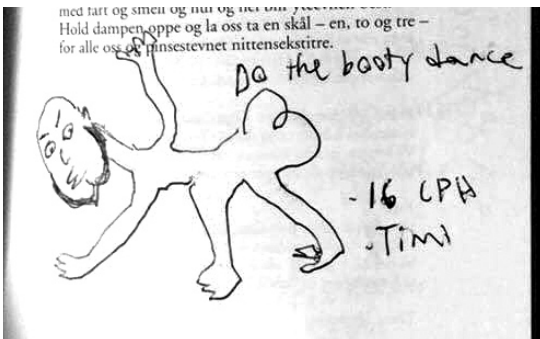 med fart og smell og hui og hei
Hold dampen oppe og la oss ta en skål – en, to og tre –
for alle oss og pinsestevnet nittensekstitre.
Do the booty dance
- 16 CPH
- Timi